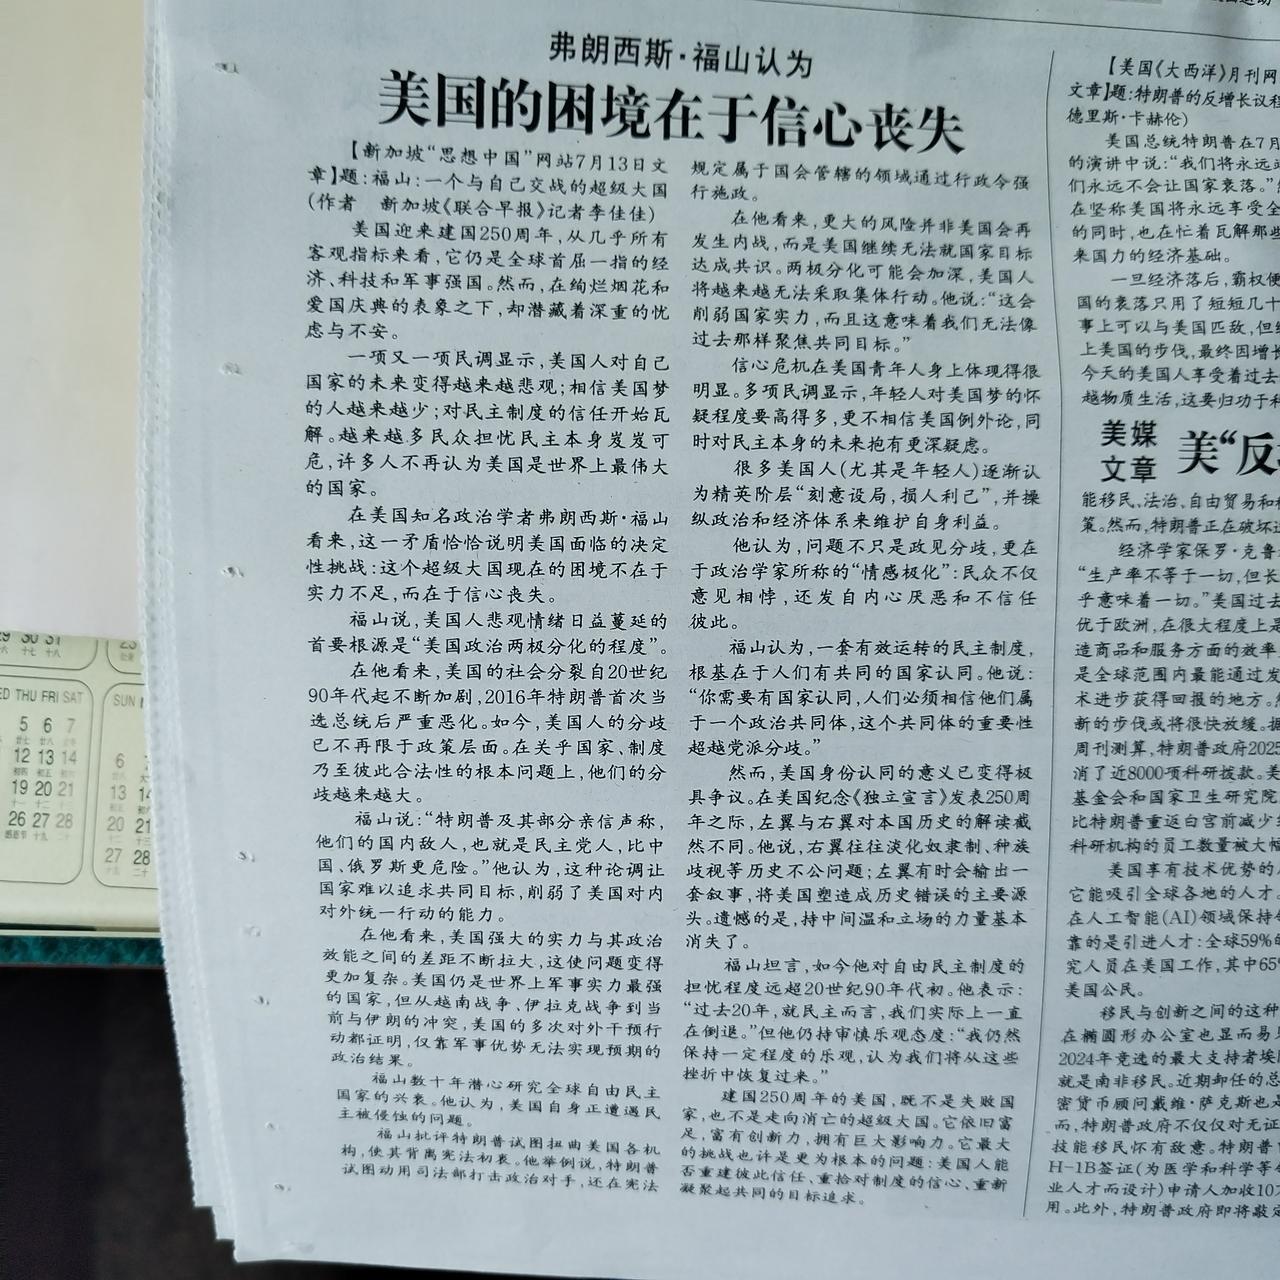 弗朗西斯·福山认为
美国的困境在于信心丧失
【新加坡“思想中国”网站7月13日文
章】题:福山:一个与自己交战的超级大国
(作者 新加坡《联合早报》记者李佳佳)
美国迎来建国250周年,从几乎所有
客观指标来看,它仍是全球首屈一指的经
济、科技和军事强国。然而,在绚烂烟花和
爱国庆典的表象之下,却潜藏着深重的忧
虑与不安。
一项又一项民调显示,美国人对自己
国家的未来变得越来越悲观;相信美国梦
的人越来越少;对民主制度的信任开始瓦
解。越来越多民众担忧民主本身岌岌可
危,许多人不再认为美国是世界上最伟大
的国家。
在美国知名政治学者弗朗西斯·福山
看来,这一矛盾恰恰说明美国面临的决定
性挑战:这个超级大国现在的困境不在于
实力不足,而在于信心丧失。
福山说,美国人悲观情绪日益蔓延的
首要根源是“美国政治两极分化的程度”。
在他看来,美国的社会分裂自20世纪
90年代起不断加剧,2016年特朗普首次当
选总统后严重恶化。如今,美国人的分歧
已不再限于政策层面。在关乎国家、制度
乃至彼此合法性的根本问题上,他们的分
歧越来越大。
福山说:“特朗普及其部分亲信声称,
他们的国内敌人,也就是民主党人,比中
国、俄罗斯更危险。”他认为,这种论调让
国家难以追求共同目标,削弱了美国对内
对外统一行动的能力。
在他看来,美国强大的实力与其政治
效能之间的差距不断拉大,这使问题变得
更加复杂。美国仍是世界上军事实力最强
的国家,但从越南战争、伊拉克战争到当
前与伊朗的冲突,美国的多次对外干预行
动都证明,仅靠军事优势无法实现预期的
政治结果。
福山数十年潜心研究全球自由民主
国家的兴衰。他认为,美国自身正遭遇民
主被侵蚀的问题。
福山批评特朗普试图扭曲美国各机
构,使其背离宪法初衷。他举例说,特朗普
试图动用司法部打击政治对手,还在宪法
规定属于国会管辖的领域通过行政令强
行施政。
在他看来,更大的风险并非美国会再
发生内战,而是美国继续无法就国家目标
达成共识。两极分化可能会加深,美国人
将越来越无法采取集体行动。他说:“这会
削弱国家实力,而且这意味着我们无法像
过去那样聚焦共同目标。”
信心危机在美国青年人身上体现得很
明显。多项民调显示,年轻人对美国梦的怀
疑程度要高得多,更不相信美国例外论,同
时对民主本身的未来抱有更深疑虑。
很多美国人(尤其是年轻人)逐渐认
为精英阶层“刻意设局,损人利己”,并操
纵政治和经济体系来维护自身利益。
他认为,问题不只是政见分歧,更在
于政治学家所称的“情感极化”:民众不仅
意见相悖,还发自内心厌恶和不信任
彼此。
福山认为,一套有效运转的民主制度,
根基在于人们有共同的国家认同。他说:
“你需要有国家认同,人们必须相信他们属
于一个政治共同体,这个共同体的重要性
超越党派分歧。”
然而,美国身份认同的意义已变得极
具争议。在美国纪念《独立宣言》发表250周
年之际,左翼与右翼对本国历史的解读截
然不同。他说,右翼往往淡化奴隶制、种族
歧视等历史不公问题;左翼有时会输出一
套叙事,将美国塑造成历史错误的主要源
头。遗憾的是,持中间温和立场的力量基本
消失了。
福山坦言,如今他对自由民主制度的
担忧程度远超20世纪90年代初。他表示:
“过去20年,就民主而言,我们实际上一直
在倒退。”但他仍持审慎乐观态度:“我仍然
保持一定程度的乐观,认为我们将从这些
挫折中恢复过来。”
建国250周年的美国,既不是失败国
家,也不是走向消亡的超级大国。它依旧富
足,富有创新力,拥有巨大影响力。它最大
的挑战也许是更为根本的问题:美国人能
否重建彼此信任、重拾对制度的信心、重新
凝聚起共同的目标追求。
【美国《大西洋》月刊网
文章】题:特朗普的反增长议程
德里斯·卡赫伦)
美国总统特朗普在7月
的演讲中说:“我们将永远
们永远不会让国家衰落。”
在坚称美国将永远享受全
的同时,也在忙着瓦解那些
来国力的经济基础。
一旦经济落后,霸权便
国的衰落只用了短短几十
事上可以与美国匹敌,但经
上美国的步伐,最终因增长
今天的美国人享受着过去
越物质生活,这要归功于科
美媒
文章
美“反
能移民、法治、自由贸易和
策。然而,特朗普正在破坏这
经济学家保罗·克鲁
“生产率不等于一切,但长
乎意味着一切。”美国过去
优于欧洲,在很大程度上是
造商品和服务方面的效率
是全球范围内最能通过发
术进步获得回报的地方。
新的步伐或将很快放缓。据
周刊测算,特朗普政府2025
消了近8000项科研拨款。美
基金会和国家卫生研究院
比特朗普重返白宫前减少
科研机构的员工数量被大幅
美国享有技术优势的
它能吸引全球各地的人才。
在人工智能(AI)领域保持
靠的是引进人才:全球59%的
究人员在美国工作,其中65%
美国公民。
移民与创新之间的这种
在椭圆形办公室也显而易
2024年竞选的最大支持者埃
就是南非移民。近期卸任的总
密货币顾问戴维·萨克斯也是
而,特朗普政府不仅仅对无证
技能移民怀有敌意。特朗普
H-1B签证(为医学和科学等
业人才而设计)申请人加收10
用。此外,特朗普政府即将敲定
29 30 31
ED THU FRI SAT
5 6 7
12 13 14
19 20 21
26 27 28
SUN
6
13 14
20 21
27 28